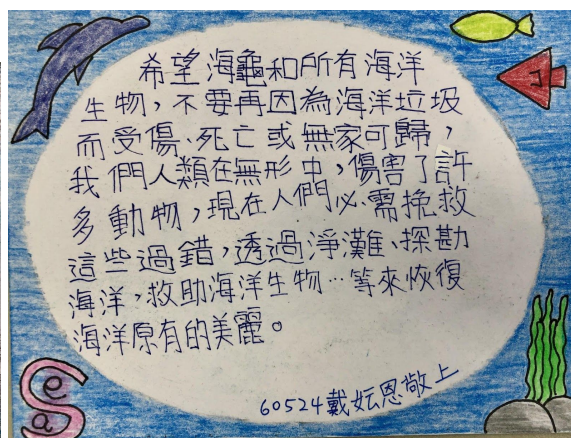 希望海龜和所有海洋
生物，不要再因為海洋垃圾
而受傷、死亡或無家可歸，
我們人類在無形中，傷害了許
多動物，現在人們必需挽救
這些過錯，透過淨灘、探勘
海洋，救助海洋生物…等來恢復
海洋原有的美麗。
60524戴妘恩敬上
Sea